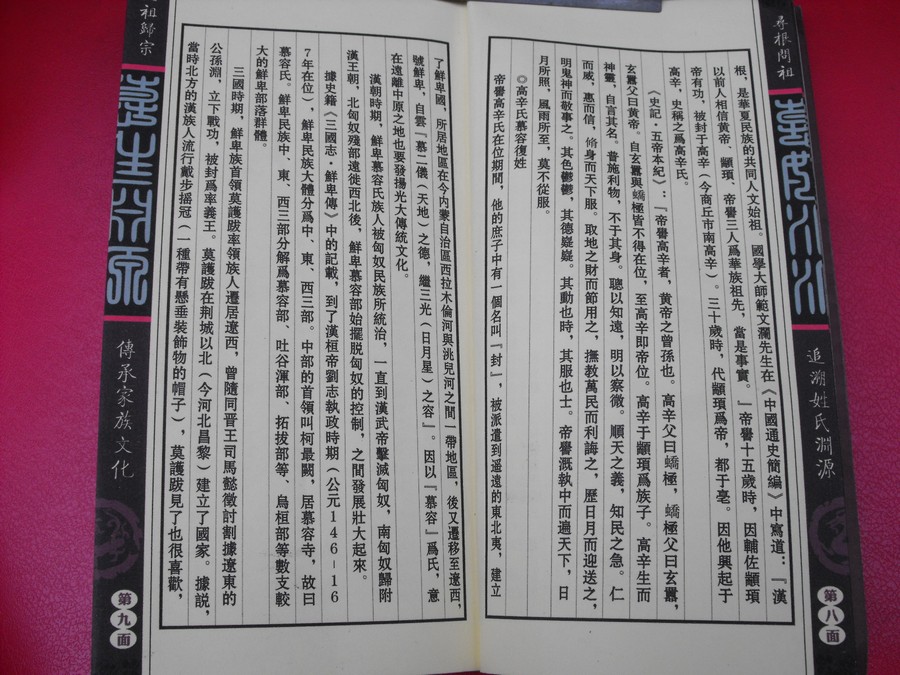 尋根問祖
追溯姓氏淵源
第八面
根，是華夏民族的共同人文始祖。國學大師範文瀾先生在《中國通史簡編》中寫道：『漢
以前人相信黄帝、顓頊、帝嚳三人爲華族祖先，當是事實。』帝嚳十五歲時，因輔佐顓頊
帝有功，被封于高辛（今商丘市南高辛）。三十歲時，代顓頊爲帝，都于亳。因他興起于
高辛，史稱之爲高辛氏。
《史記·五帝本紀》：『帝嚳高辛者，黄帝之曾孫也。高辛父曰蟜極，蟜極父曰玄囂，
玄囂父曰黄帝。自玄囂與蟜極皆不得在位，至高辛即帝位。高辛于顓頊爲族子。高辛生而
神靈，自言其名。普施利物，不于其身。聰以知遠，明以察微。順天之義，知民之急。仁
而威，惠而信，脩身而天下服。取地之財而節用之，撫教萬民而利誨之，歷日月而迎送之，
明鬼神而敬事之。其色鬱鬱，其德嶷嶷。其動也時，其服也士。帝嚳溉執中而遍天下，日
月所照，風雨所至，莫不從服。
◎高辛氏慕容復姓
帝嚳高辛氏在位期間，他的庶子中有一個名叫『封』，被派遣到遥遠的東北夷，建立
了鮮卑國，所居地區在今内蒙自治區西拉木倫河與洮兒河之間一帶地區，後又遷移至遼西，
號鮮卑，自雲『慕二儀（天地）之德，繼三光（日月星）之容』。因以『慕容』爲氏，意
在遠離中原之地也要發揚光大傳統文化。
漢朝時期，鮮卑慕容氏族人被匈奴民族所統治，一直到漢武帝擊滅匈奴，南匈奴歸附
漢王朝，北匈奴殘部遠徙西北後，鮮卑慕容部始擺脱匈奴的控制，之間發展壯大起來。
據史籍《三國志·鮮卑傳》中的記載，到了漢桓帝劉志執政時期（公元146-16
7年在位），鮮卑民族大體分爲中、東、西三部。中部的首領叫柯最闕，居慕容寺，故曰
慕容氏。鮮卑民族中、東、西三部分解爲慕容部、吐谷渾部、拓拔部等、烏桓部等數支較
大的鮮卑部落群體。
三國時期，鮮卑族首領莫護跋率領族人遷居遼西，曾隨同晋王司馬懿徵討割據遼東的
公孫淵，立下戰功，被封爲率義王。莫護跋在荆城以北（今河北昌黎）建立了國家。據説，
當時北方的漢族人流行戴步摇冠（一種帶有懸垂裝飾物的帽子），莫護跋見了也很喜歡，
祖歸宗
傳承家族文化
第九面